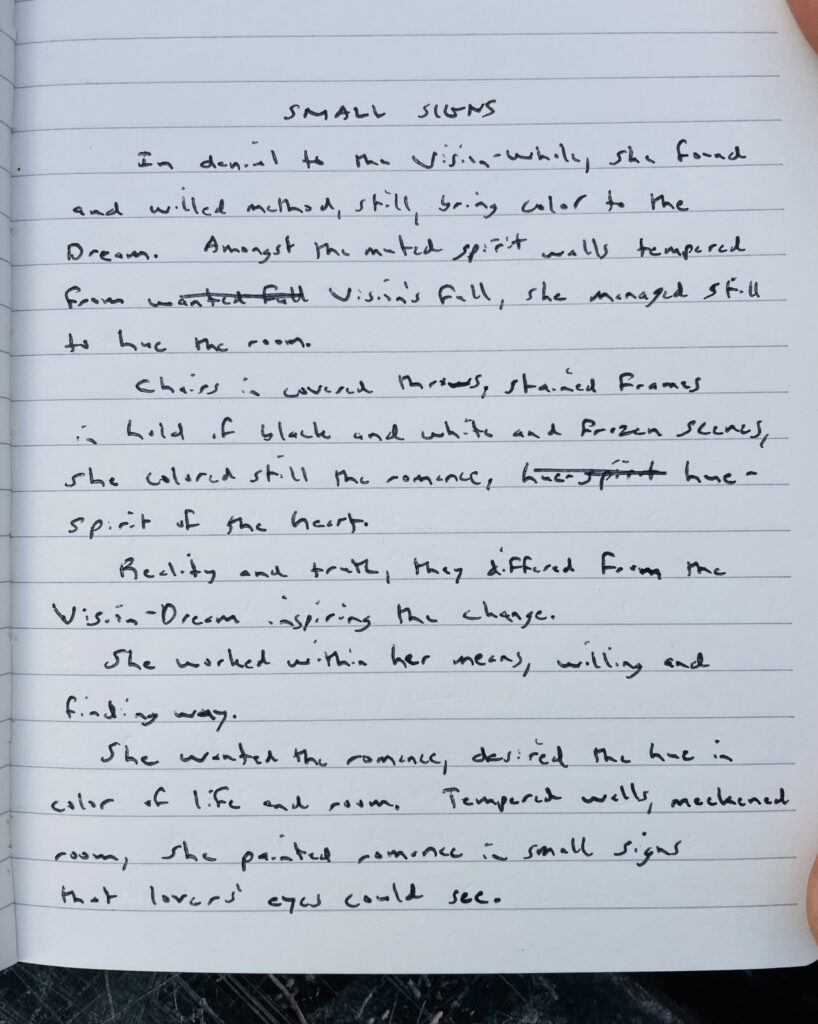 SMALL SIGNS
In denial to the Vision-Whole, she found
and willed method, still, bring color to the
Dream. Amongst the muted spirit walls tempered
from wanted fall Vision's fall, she managed still
to hue the room.
Chairs in covered throws, stained frames
in hold of black and white and frozen scenes,
she colored still the romance, hue-spirit hue-
spirit of the heart.
Reality and truth, they differed from the
Vision-Dream inspiring the change.
She worked within her means, willing and
finding way.
She wanted the romance, desired the hue in
color of life and room. Tempered walls, meekened
room, she painted romance in small signs
that lovers' eyes could see.